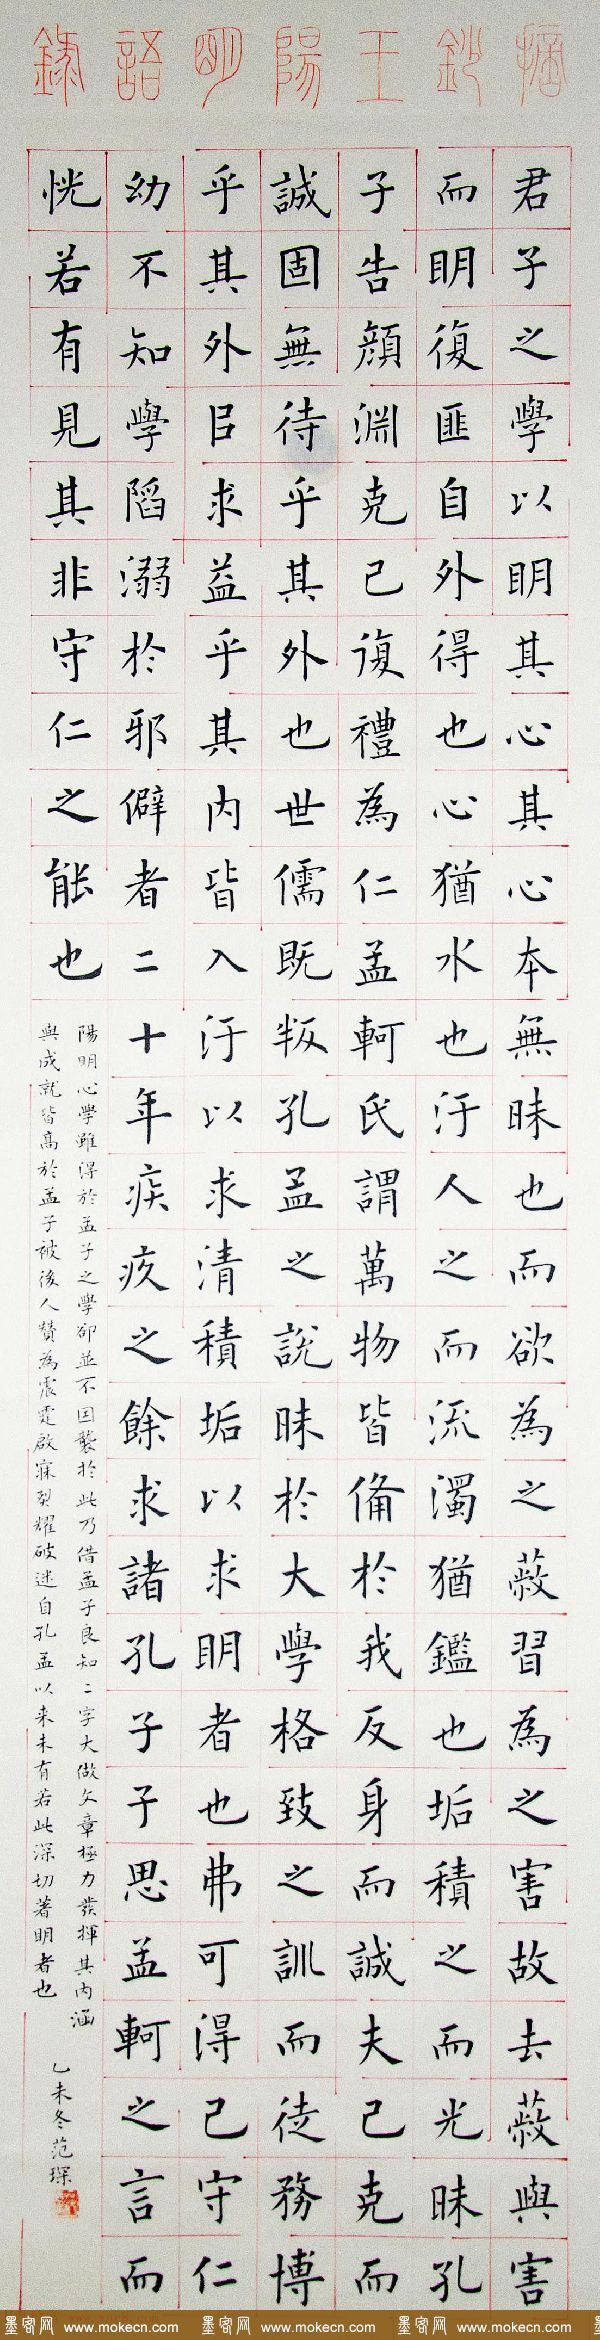 摘鈔王陽明語錄
君子之學以明其心其心本無昧也而欲為之蔽習為之害故去蔽與害
而明復匪自外得也心猶水也汙人之而流濁猶鑑也垢積之而光昧孔
子告顏淵克己復禮為仁孟軻氏謂萬物皆備於我反身而誠夫己克而
誠固無待乎其外也世儒既叛孔孟之說昧於大學格致之訓而徒務博
乎其外㠯求益乎其內皆入汙以求清積垢以求明者也弗可得已守仁
幼不知學陷溺於邪僻者二十年疾疚之餘求諸孔子子思孟軻之言而
恍若有見其非守仁之能也
陽明心學雖得於孟子之學卻並不因襲於此乃借孟子良知二字大做文章極力發揮其內涵
與成就皆高於孟子被後人贊為震霆啟寐烈耀破迷自孔孟以来未有若此深切著明者也
乙未冬范琛
墨客网 www.mokecn.com 墨客网 www.mokecn.com 墨客网 www.mokecn.com